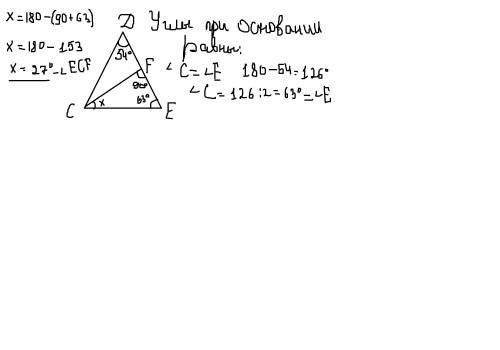 x=180-(90+63)
x=180-153
x=27°-∠ECF
D
54°
F
90°
63°
x
C
E
Углы при основании
равны.
∠C=∠E 180-54=126°
∠C=126:2=63°=∠E